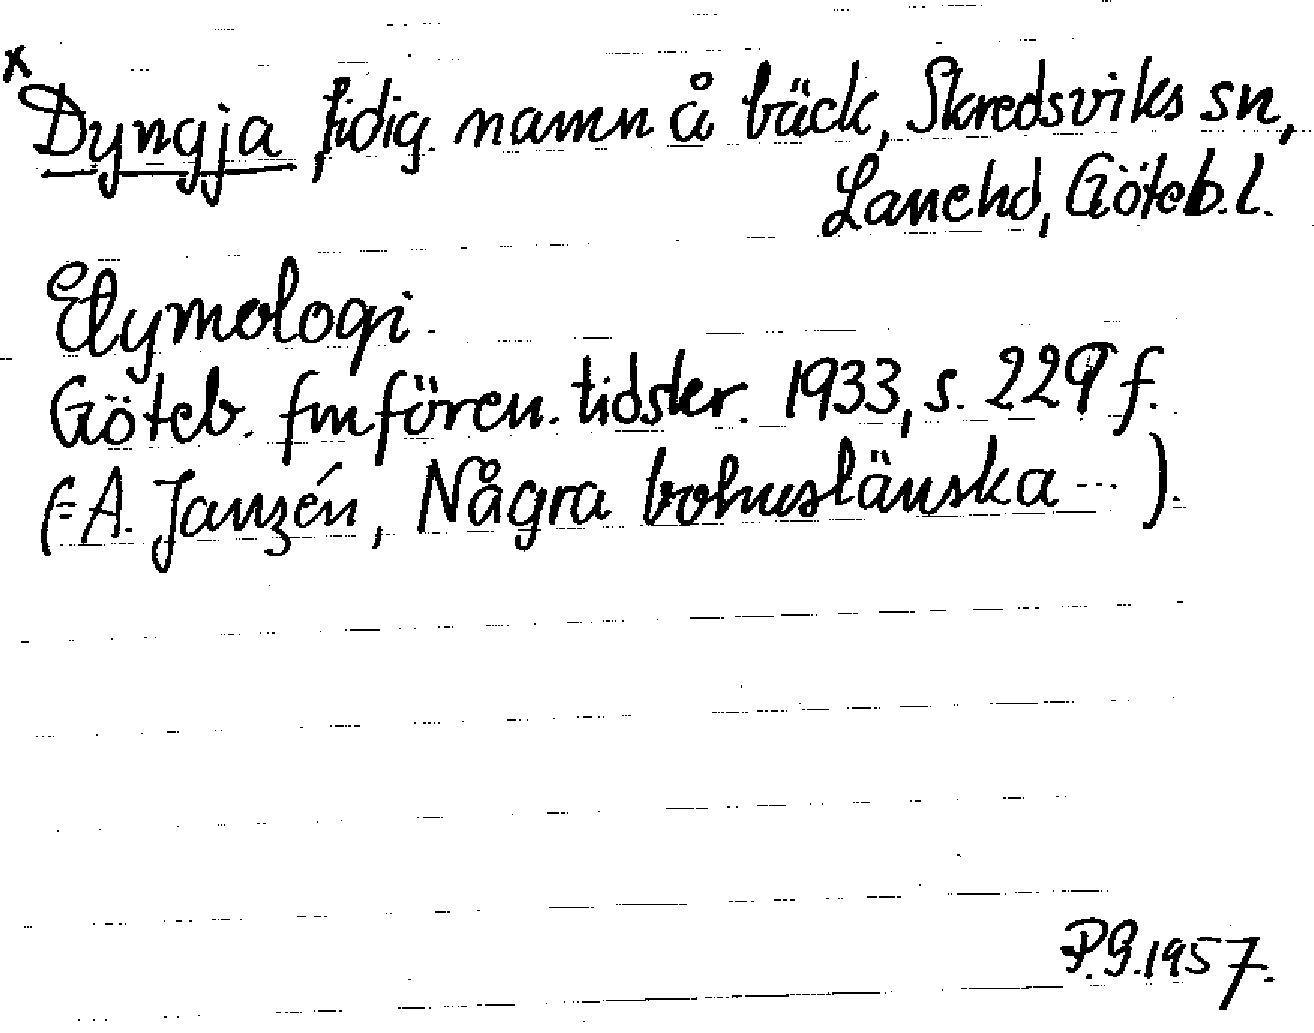 x
Dyngja, tidig. namn å bäck, Skredsviks sn,
Lanehd, Göteb. l.
Etymologi.
Göteb. fmfören. tidskr. 1933, s. 229 f.
(= A. Janzén, Några bohuslänska ... ).
P.G. 1957.